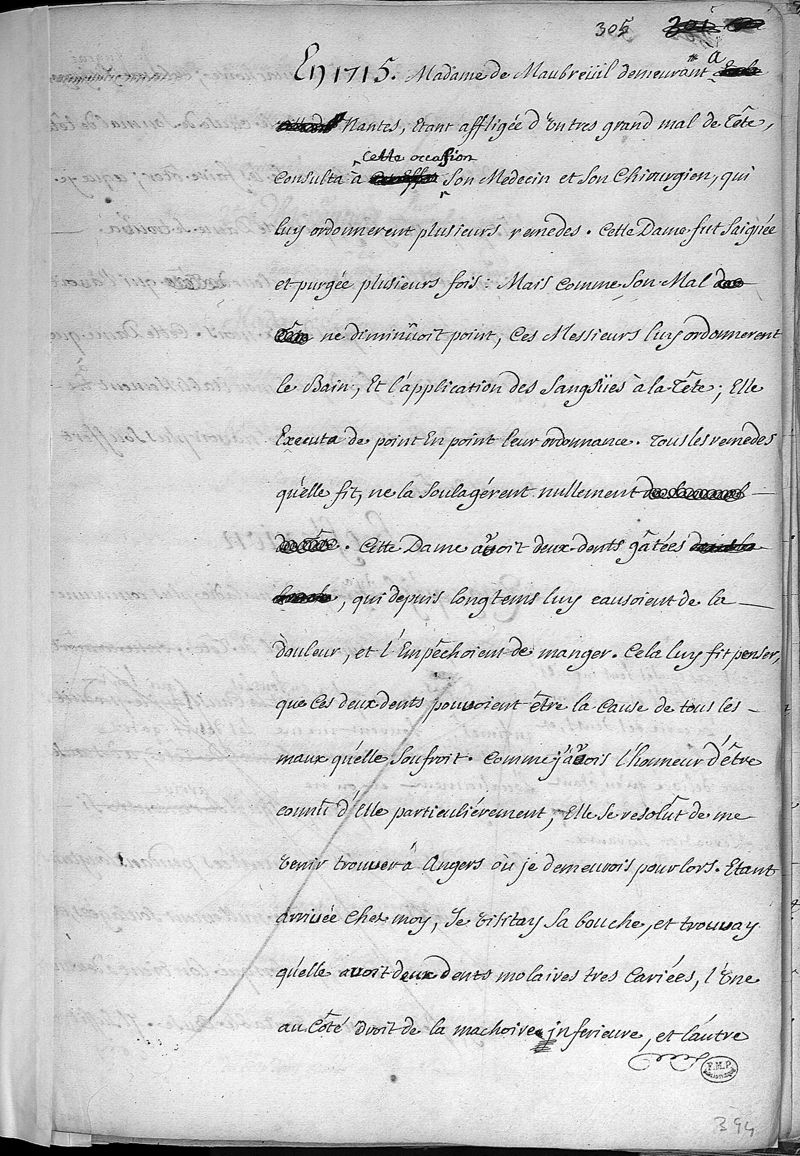 305
En 1715. Madame de Maubreüil demeurant a
Nantes, Etant affligée d'un tres grand mal de Tête,
cette occasion
Consulta à Son Medecin et Son Chirurgien, qui
luy ordonnerent plusieurs remedes. Cette Dame fut Saignée
et purgée plusieurs fois: Mais comme Son Mal
ne diminuoit point, Ces Messieurs luy ordonnerent
le Bain, Et l'application des Sangsües à la Tête; Elle
Executa de point En point leur ordonnance. Tous les remedes
qu'elle fit, ne la Soulagérent nullement
. Cette Dame avoit deux dents gâtées
, qui depuis longtems luy causoient de la
douleur, et l'Empêchoient de manger. Cela luy fit penser,
que Ces deux dents pouvoient être la Cause de tous les
maux qu'elle Soufroit. Comme j'avois l'honneur d'être
connû d'Elle particuliérement, Elle se resolût de me
venir trouver à Angers où je demeurois pour lors. Etant
arrivée Chez moy, Je visitay Sa bouche, et trouvay
qu'elle avoit deux dents molaires tres Cariées, l'Une
au Côté droit de la machoire inferieure, et l'autre
F.M.P.
394